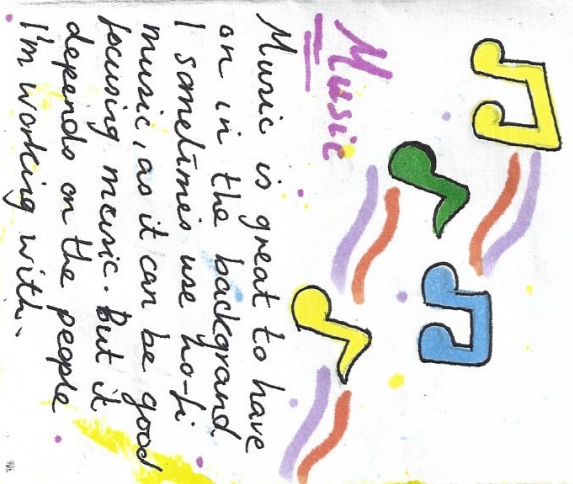 Music
Music is great to have
on in the backgrand
I sometimes use ho-fi
music, as it can be good
focusing music. But it
depends on the people
I'm working with.